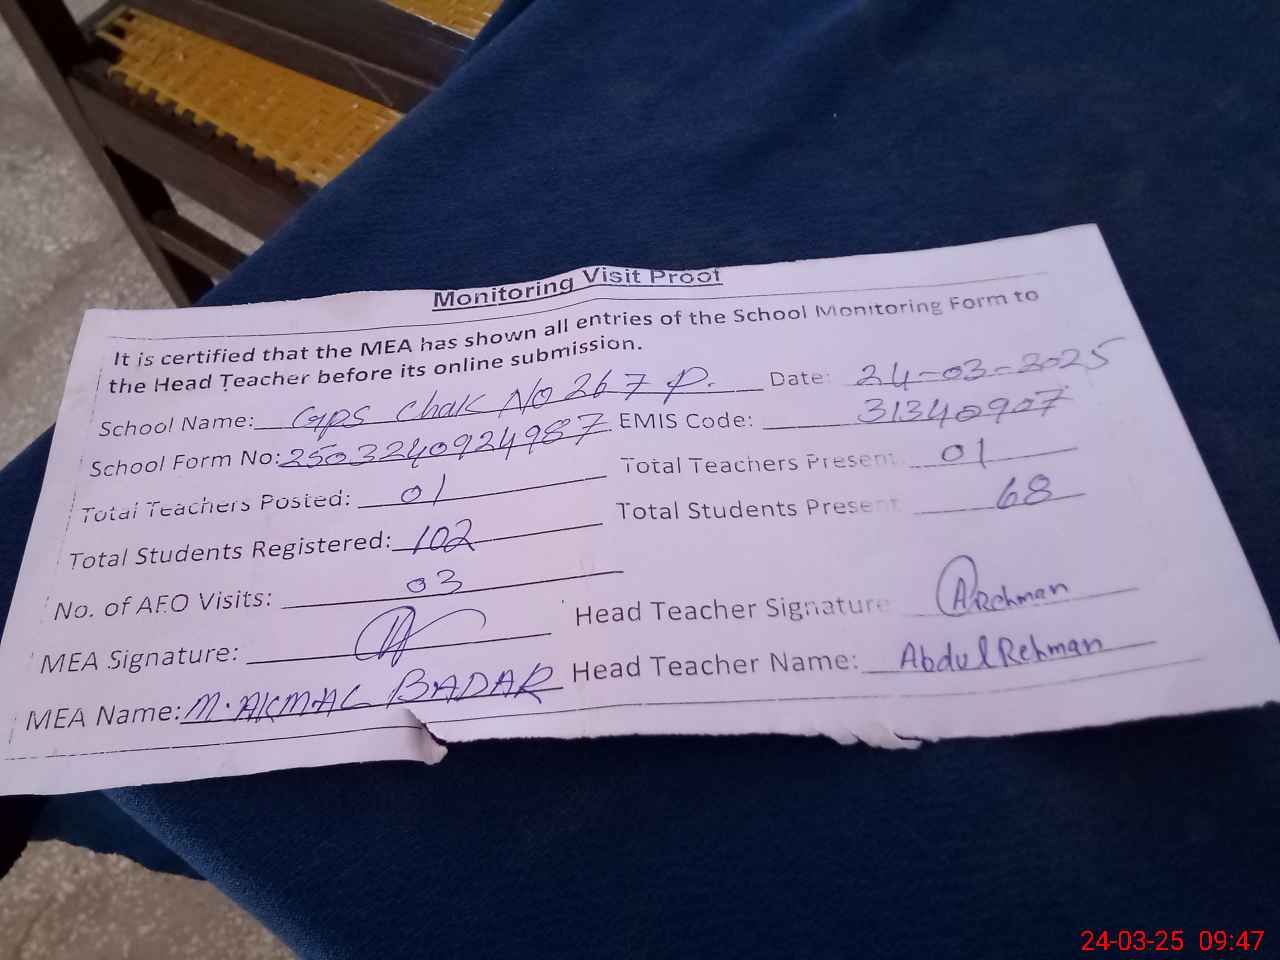 Monitoring Visit Proof
It is certified that the MEA has shown all entries of the School Monitoring Form to
the Head Teacher before its online submission.
School Name: GPS Chak No 267 P. Date: 24-03-2025
School Form No: 2503240924987 EMIS Code: 31340907
Total Teachers Posted: 01 Total Teachers Present 01
Total Students Registered: 102 Total Students Present 68
No. of AEO Visits: 03
MEA Signature: Head Teacher Signature ARehman
MEA Name: M. AKMAL BADAR Head Teacher Name: Abdul Rehman
24-03-25 09:47